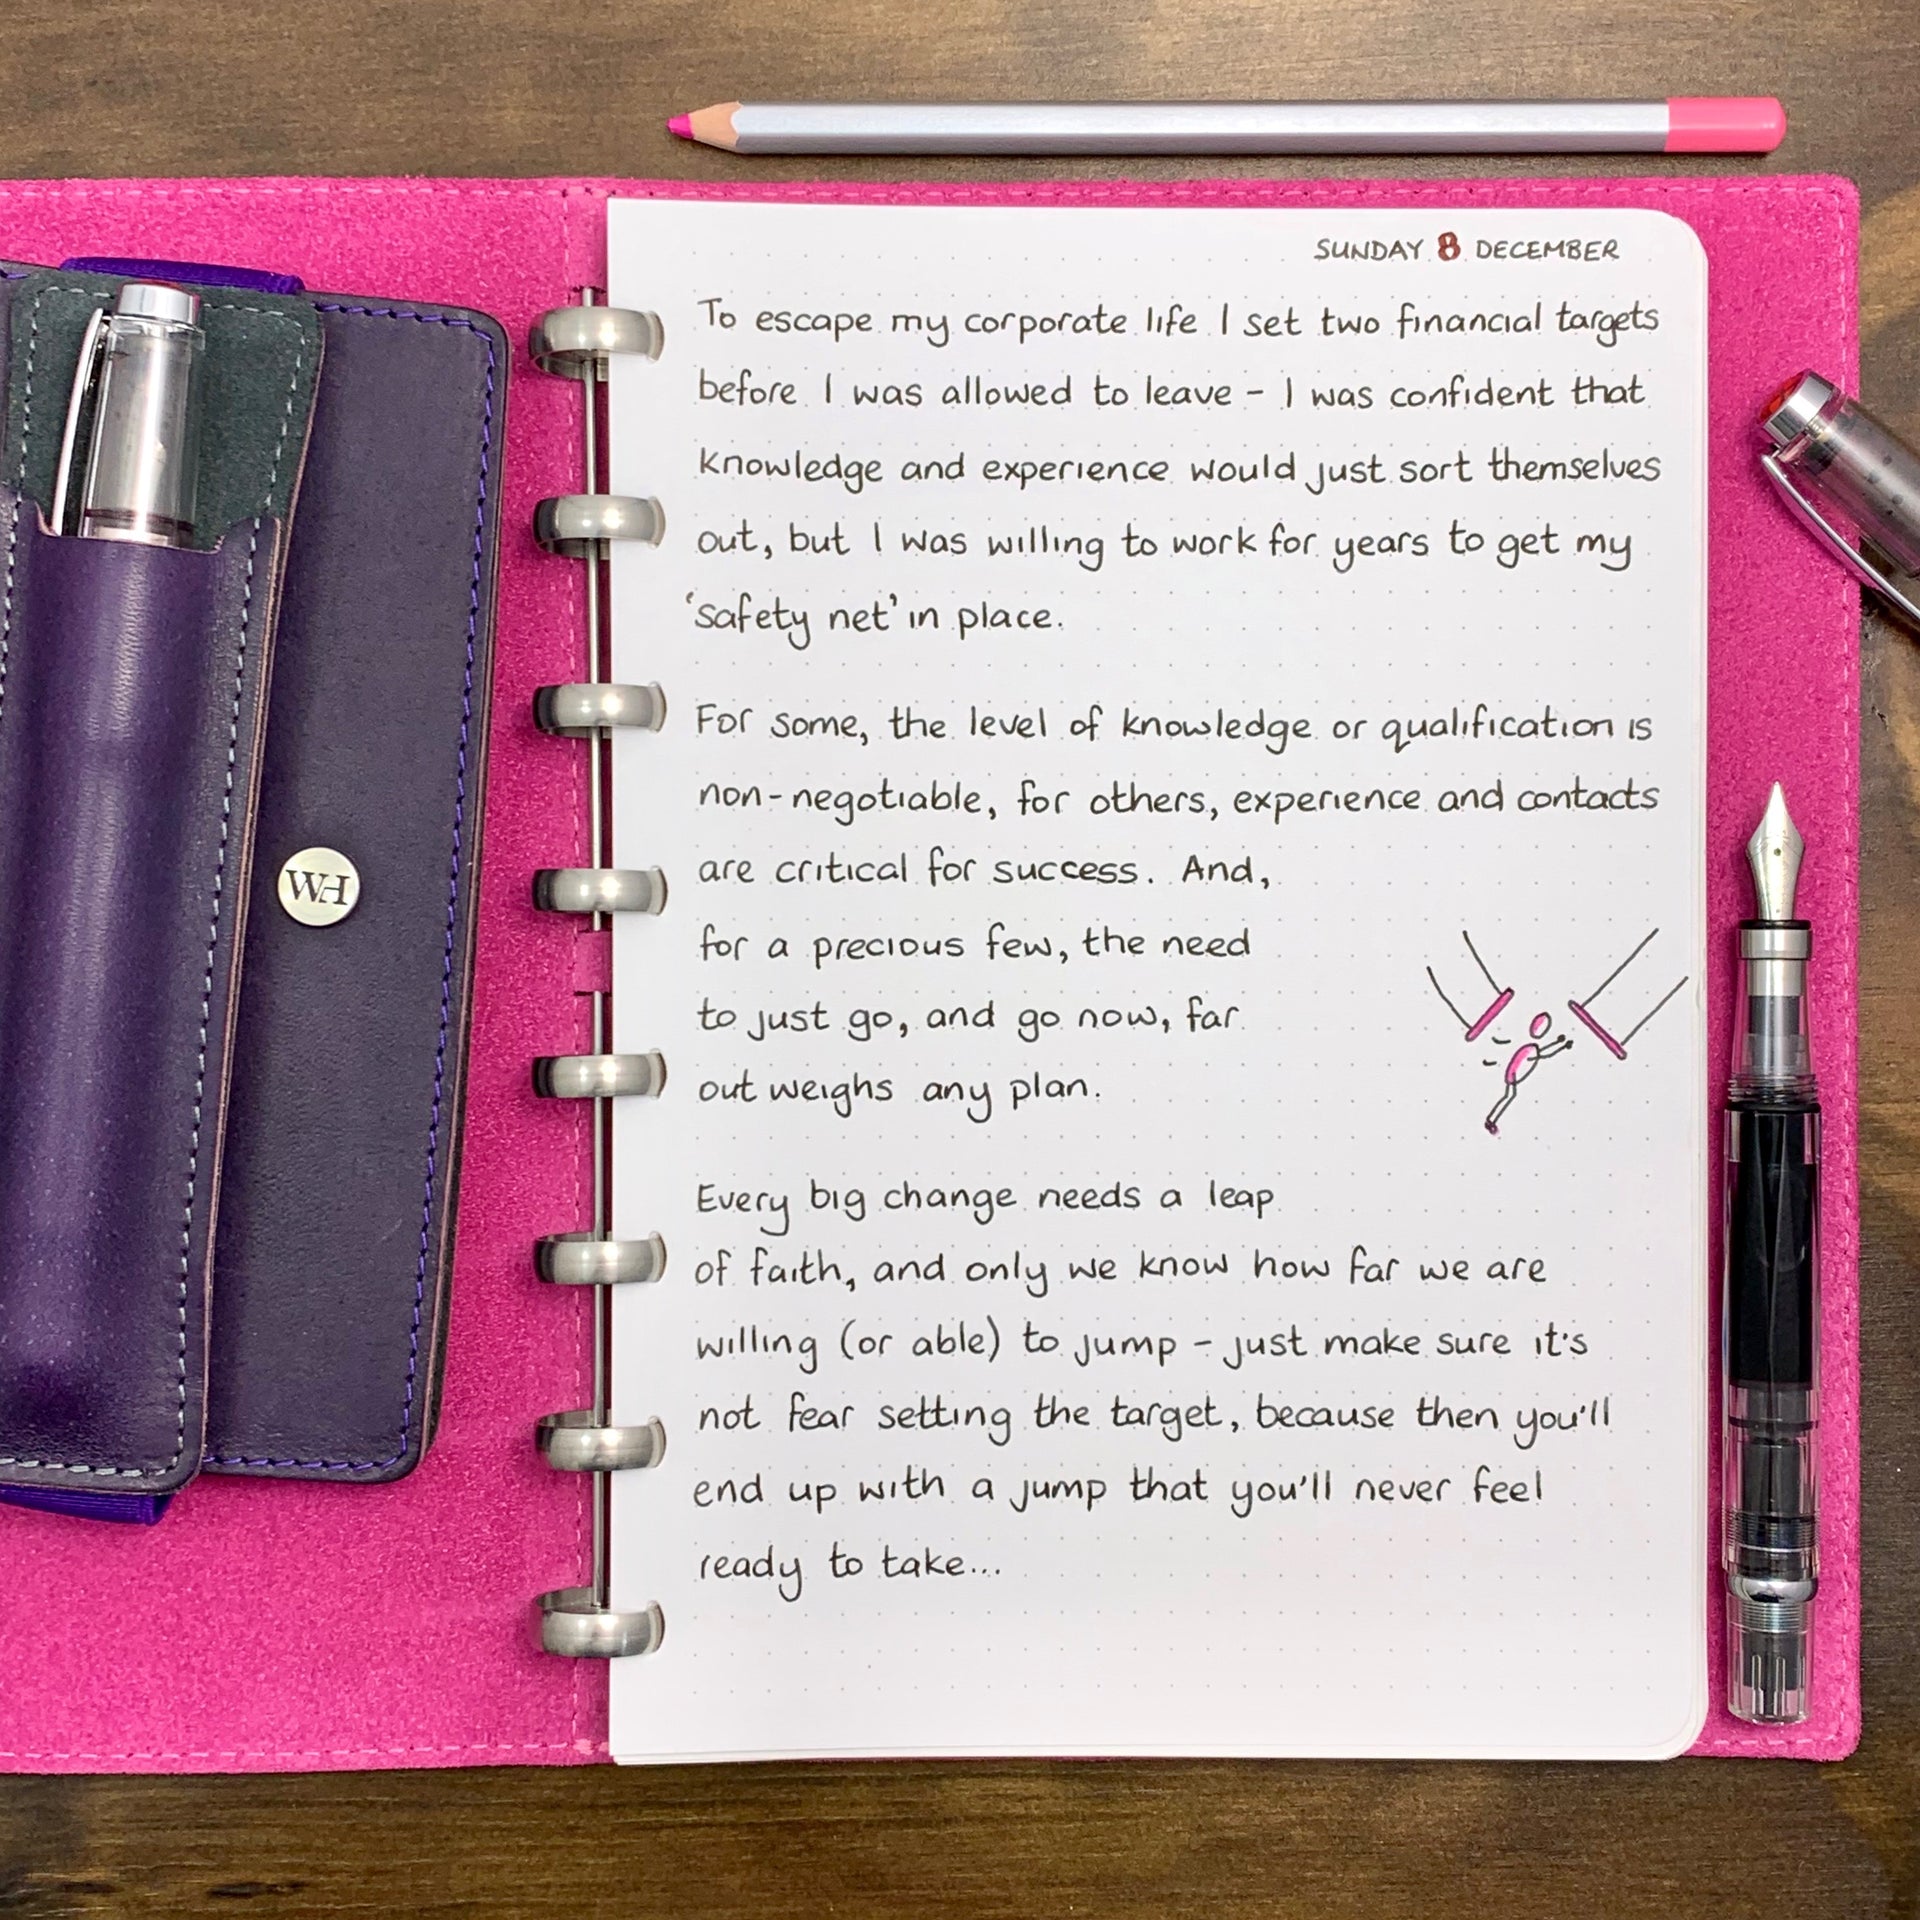 SUNDAY 8 DECEMBER
To escape my corporate life I set two financial targets
before I was allowed to leave - I was confident that
knowledge and experience would just sort themselves
out, but I was willing to work for years to get my
'safety net' in place.
For some, the level of knowledge or qualification is
non-negotiable, for others, experience and contacts
are critical for success. And,
for a precious few, the need
to just go, and go now, far
out weighs any plan.
Every big change needs a leap
of faith, and only we know how far we are
willing (or able) to jump - just make sure it's
not fear setting the target, because then you'll
end up with a jump that you'll never feel
ready to take...
WH